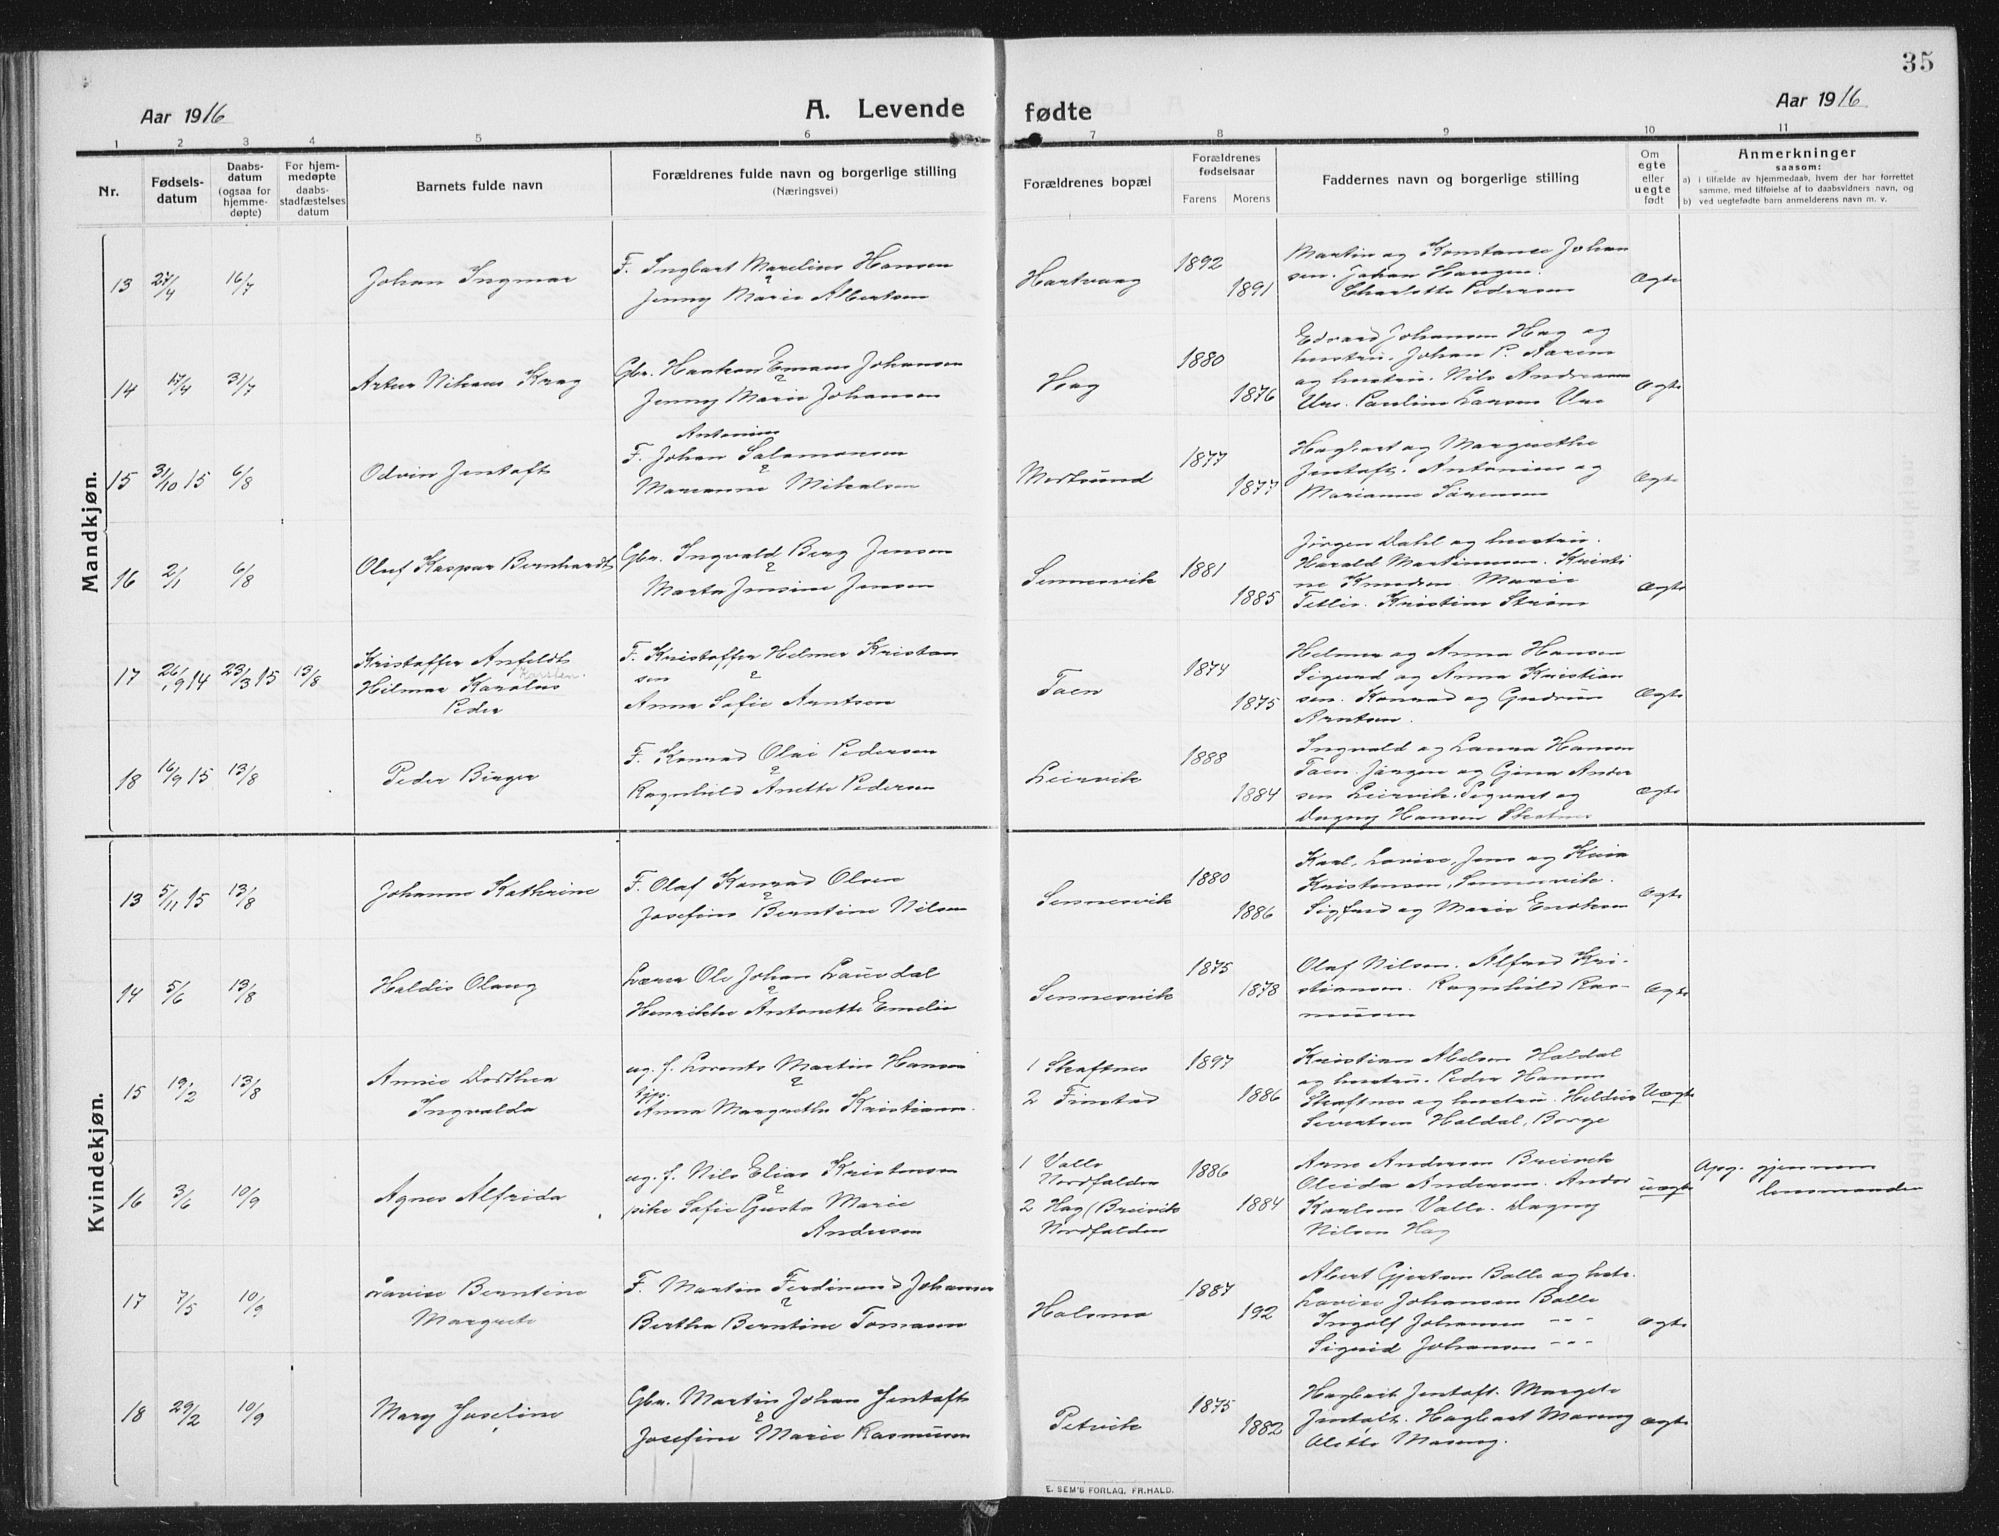 35
Aar 1916
A. Levende
fødte
Aar 1916
1 2 3 4 5 6 7 8 9 10 11
Nr.
Fødsels-
datum
Daabs-
datum
(ogsaa for
hjemme-
døpte)
For hjem-
medøpte
daabs-
stadfæstelses
datum
Barnets fulde navn
Forældrenes fulde navn og borgerlige stilling
(Næringsvei)
Forældrenes bopæl
Forældrenes
fødselsaar
Farens Morens
Faddernes navn og borgerlige stilling
Om
egte
eller
uegte
født
Anmerkninger
saasom:
a) i tilfælde av hjemmedaab, hvem der har forrettet
samme, med tilføielse af to daabsvidners navn, og
b) ved uegtefødte barn anmelderens navn m. v.
Mandkjøn.
13 27/4 16/7 Johan Ingmar
F. Ingbart Marelius Hansen
Jenny Marie Albertsen
Hartvaag 1892 1891
Martin og Konstanse Johan
sen. Johan Haugen.
Charlotte Pedersen
Ægte
14 17/4 31/7 Artur Nikaus Krag
Gbr. Haakon Emaus Johansen
Jenny Marie Johansen
Hag 1880 1876
Edvard Johansen Hag og
hustru. Johan P. Aarens
og hustru. Nils Andreasen
Ure. Pauline Larsen Ure
Ægte
15 31/10 15 6/8 Odvin Jentoft
Antonius
F. Johan Salamonsen
Marianne Mikalsen
Mortsund 1877 1877
Hagbart og Margrethe
Jentoft. Antonius og
Marianne Sørensen
Ægte
16 2/1 6/8 Oluf Kaspar Bernhardt
Gbr. Ingvald Berg Jensen
Marta Jensine Jensen
Sennesvik 1881 1885
Jørgen Dahl og hustru.
Harald Martinussen. Kristi
ne Knudsen. Marie
Tetlie. Kristine Strøm
Ægte
17 26/9 14 23/3 15 13/8
Kristoffer Anfeldt
Karsten.
Hilmar Karolus
Peder
F. Kristoffer Helmer Kristian
sen
Anna Sofie Arntsen
Taen 1874 1875
Helmer og Anna Hansen
Sigurd og Anna Kristian
sen. Konrad og Gudrun
Arntsen.
Ægte
18 16/9 15 13/8 Peder Birger
F. Konrad Olai Pedersen
Ragnhild Anette Pedersen
Leirvik 1888 1884
Ingvald og Laura Hansen
Taen. Jørgen og Gjina Ander
sen Leirvik. Sigvart og
Dagny Hansen Skotnes
Ægte
Kvindekjøn.
13 5/11 15 13/8 Johanne Kathrine
F. Olaf Konrad Olsen
Josefine Berntine Nilsen
Sennesvik 1880 1886
Karl, Lovise, Jens og Kaia
Kristensen, Sennesvik.
Sigfred og Marie Eriksen
Ægte
14 5/6 13/8 Haldis Olaug
Lærer Ole Johan Lauvdal
Henrikke Antonette Emelie
Sennesvik 1875 1878
Olaf Nilsen. Alfred Kri-
stiansen. Ragnhild Ras-
mussen
Ægte
15 19/2 13/8 Annie Dorthea
Ingvalda
ug. f. Lorents Martin Hansen
Anna Margrethe Kristians.
1 Skaftnes
2 Finstad
1897 1886
Kristian Abelsen Haldal
og hustru. Peder Hansen
Skaftnes og hustru. Heldine
Sivertsen Haldal, Borge
Uægte
16 3/6 10/9 Agnes Alfrida
ug. f. Nils Elias Kristensen
pike Sofie Gusta Marie
Andersen
1 Valle
Nordfolden
2 Hag (Breivik
Nordfolden
1886 1884
Arne Andersen Breivik
Oleida Andersen. Andor
Karlsen Valle. Dagny
Nilsen Hag
uægte
Opg. gjennem
lensmanden
17 7/5 10/9 Lavise Berntine
Margrete
F. Martin Ferdinand Johansen
Bertha Berntine Tomassen
Holsmo 1887 192
Albert Gjertsen Balle og hstr.
Lovise Johansen Balle
Ingolf Johansen " " "
Sigrid Johansen " " "
Ægte
18 29/2 10/9 Mary Joseline
Gbr. Martin Johan Jentoft
Josefine Marie Rasmussen
Petvik 1875 1882
Hagbart Jentoft. Margete
Jentoft. Hagbart Maseng
Alette Maseng.
Ægte
E. SEM'S FORLAG, FR.HALD.